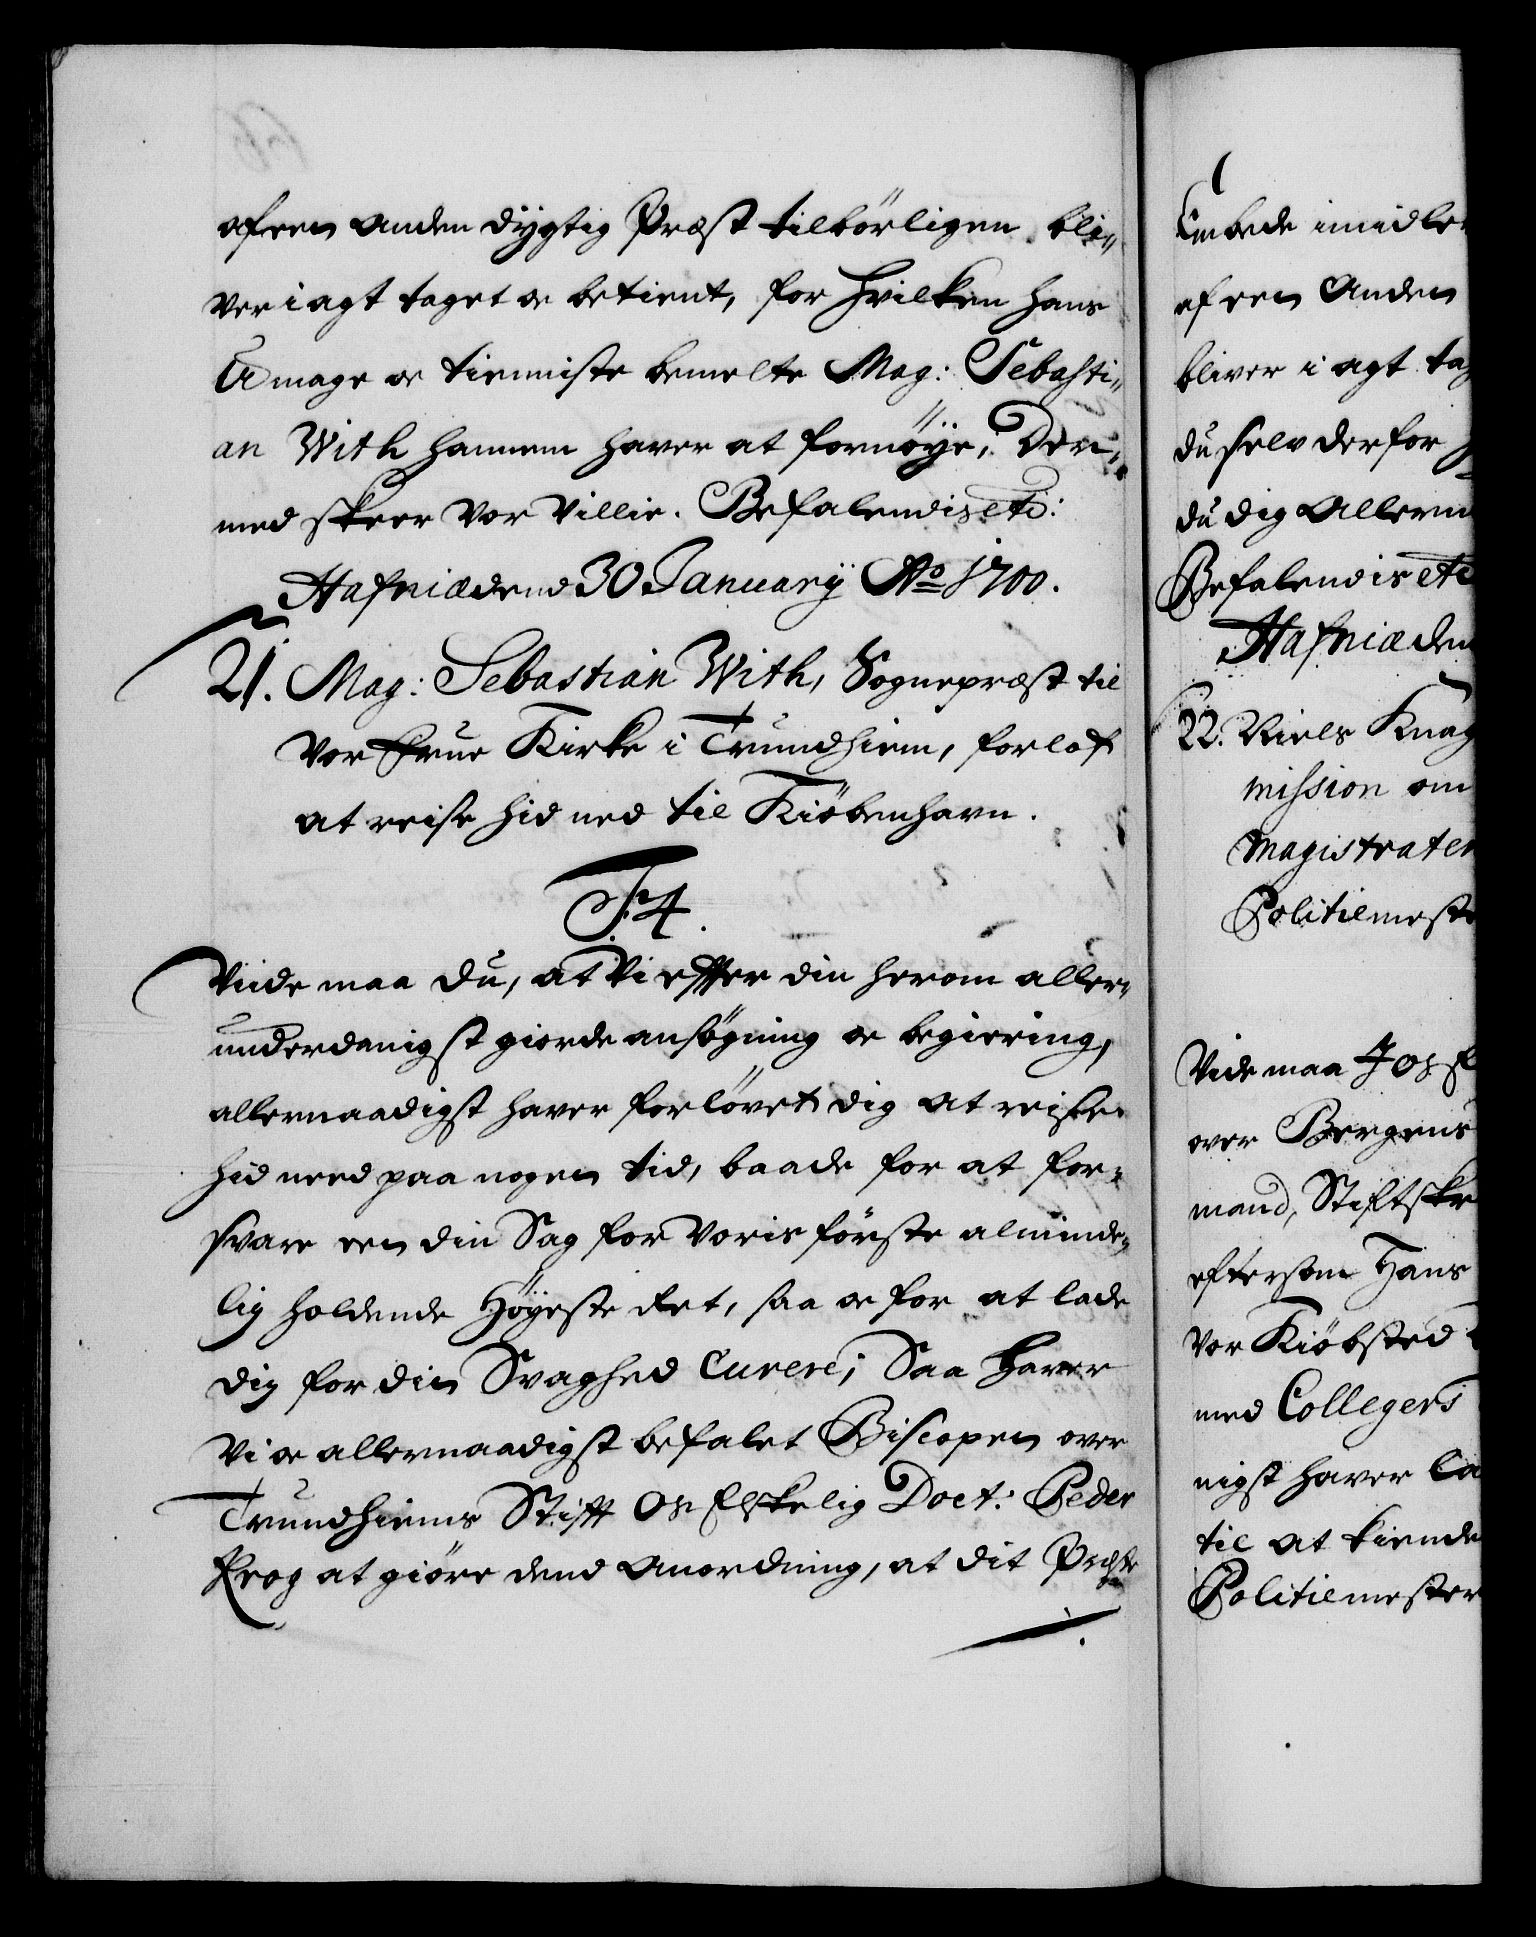 af een anden dygtig Præst tilbörligen bli„
ver i agt taget oc betient, for hvilken hans
Umage oc tienniste bemelte Mag: Sebasti„
an With hannem haver at fornöye; Der„
med skeer Vor Villie. Befalendis etc:
Hafniæ dend 30 January Ao 1700.
21. Mag: Sebastian With, Sognepræst til
Vor Frue Kirke i Trundhiem, forlof
at reise hid ned til Kiöbenhavn.
F. 4.
Viide maa Du, at Vi effter din herom aller„
underdanigst giorde ansögning oc begiering,
allernaadigst haver forlövet dig at reise
hid need paa nogen tid, baade for at for„
svare een din Sag for Voris förste alminde„
lig holdende Höyeste Ret, saa oc for at lade
dig for din Svaghed Curere; Saa haver
Vi oc allernaadigst befalet Biscopen over
Trundhiems Stifft Os Elskelig Doct: Peder
Krog at giöre dend anordning, at dit Præste
Embede imidler
af een Anden
bliver i agt tag
du selv derfor
du dig Allerund
Befalendis etc
Hafniæ den
22. Niels Knag
mission om
Magistraten
Politiemeste
Viide maa I Os El
over Bergens
mand, Stiftskr
eftersom Hans
Vor Kiöbsted
med Collegers
nigst haver la
til at kiende
Politiemester